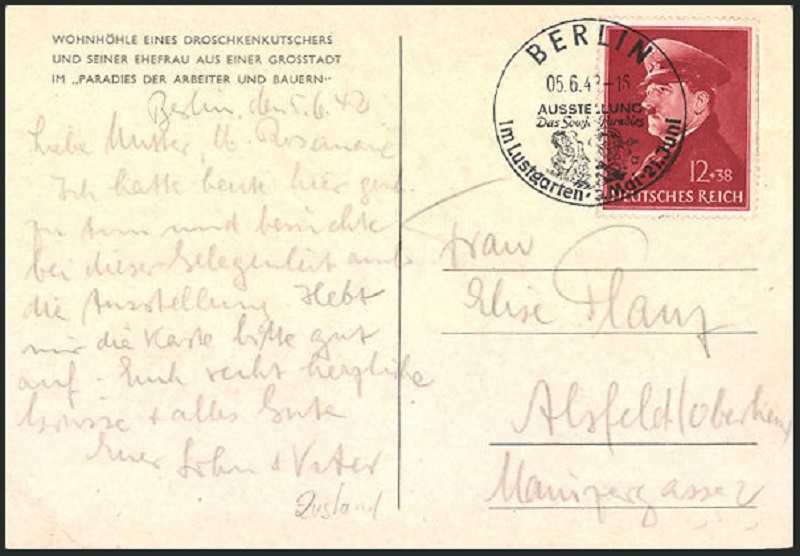 WOHNHÖHLE EINES DROSCHKENKUTSCHERS
UND SEINER EHEFRAU AUS EINER GROSSTADT
IM „PARADIES DER ARBEITER UND BAUERN"
Berlin, den 5.6.42
Liebe Mutter, Rosemarie
Ich hatte heute hier
zu tun und besuchte
bei dieser Gelegenheit auch
die Ausstellung. Hebt
mir die Karte bitte gut
auf. Euch recht herzliche
Grüsse + alles Gute
Euer Sohn + Vater
BERLIN
05.6.42-16
AUSSTELLUNG
Das Sowjet-Paradies
Im Lustgarten · Mai-21. Juni
a
12+38
DEUTSCHES REICH
Frau
Elise
Alsfeld/Oberhess
Mainzergasse 2